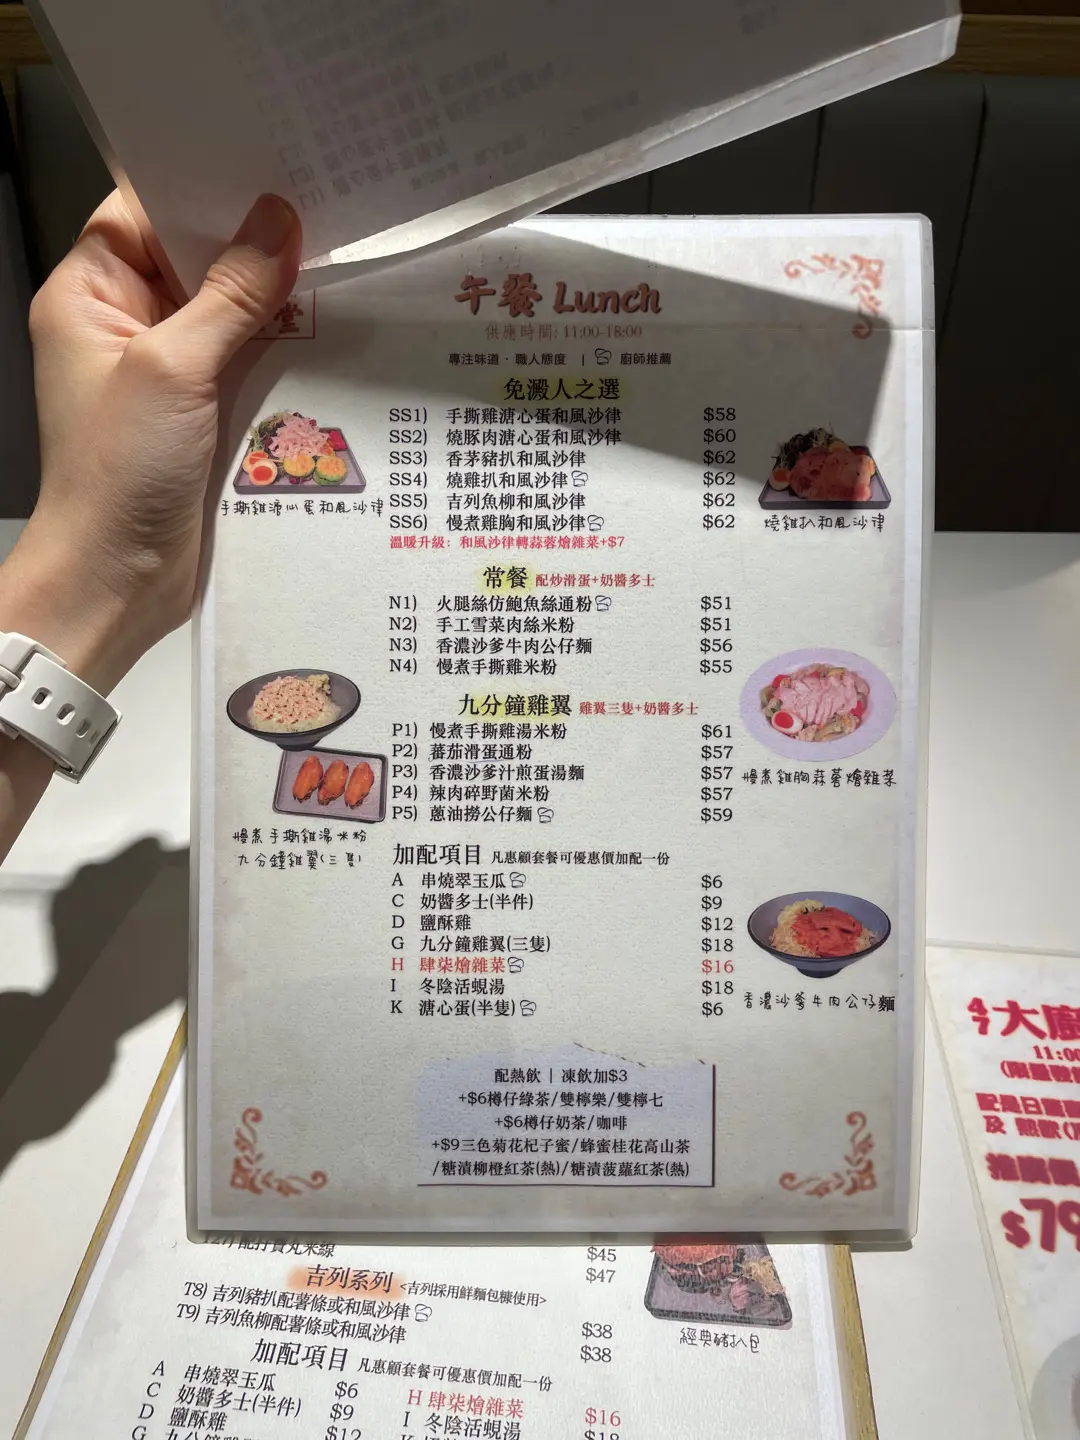 堂
午餐 Lunch
供應時間: 11:00-18:00
專注味道·職人態度 | 廚師推薦
免澱人之選
SS1) 手撕雞溏心蛋和風沙律 $58
SS2) 燒豚肉溏心蛋和風沙律 $60
SS3) 香茅豬扒和風沙律 $62
SS4) 燒雞扒和風沙律 $62
SS5) 吉列魚柳和風沙律 $62
SS6) 慢煮雞胸和風沙律 $62
溫暖升級: 和風沙律轉蒜蓉燴雜菜+$7
手撕雞溏心蛋和風沙律
燒雞扒和風沙律
常餐 配炒滑蛋+奶醬多士
N1) 火腿絲仿鮑魚絲通粉 $51
N2) 手工雪菜肉絲米粉 $51
N3) 香濃沙爹牛肉公仔麵 $56
N4) 慢煮手撕雞米粉 $55
九分鐘雞翼 雞翼三隻+奶醬多士
P1) 慢煮手撕雞湯米粉 $61
P2) 蕃茄滑蛋通粉 $57
P3) 香濃沙爹汁煎蛋湯麵 $57
P4) 辣肉碎野菌米粉 $57
P5) 蔥油撈公仔麵 $59
慢煮雞胸蒜蓉燴雜菜
慢煮手撕雞湯米粉
九分鐘雞翼(三隻)
加配項目 凡惠顧套餐可優惠價加配一份
A 串燒翠玉瓜 $6
C 奶醬多士(半件) $9
D 鹽酥雞 $12
G 九分鐘雞翼(三隻) $18
H 肆柒燴雜菜 $16
I 冬陰活蜆湯 $18
K 溏心蛋(半隻) $6
香濃沙爹牛肉公仔麵
配熱飲 | 凍飲加$3
+$6樽仔綠茶/雙檸樂/雙檸七
+$6樽仔奶茶/咖啡
+$9三色菊花杞子蜜/蜂蜜桂花高山茶
/糖漬柳橙紅茶(熱)/糖漬菠蘿紅茶(熱)
米線 $45
$47
吉列系列 <吉列採用鮮麵包糠使用>
T8) 吉列豬扒配薯條或和風沙律 $38
T9) 吉列魚柳配薯條或和風沙律 $38
經典豬扒包
加配項目 凡惠顧套餐可優惠價加配一份
A 串燒翠玉瓜 $6
C 奶醬多士(半件) $9
D 鹽酥雞 $12
G 九分鐘
H 肆柒燴雜菜 $16
I 冬陰活蜆湯 $18
47大廚
11:00
(限量
配是日
及 熱飲
推廣價
$79